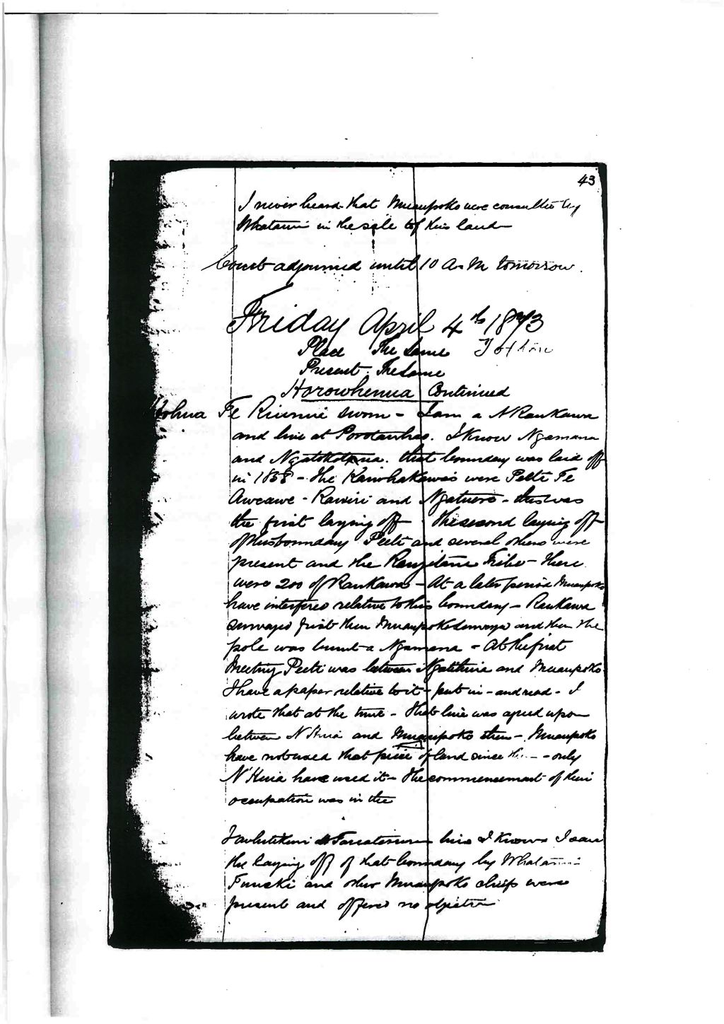 43
I never heard that Muaupoko were consulted by
Whatanui in the sale of this land
Court adjourned until 10 A.M tomorrow.
Friday April 4th 1873
Place The Same
Present. The Same
Horowhenua Continued
Te sworn - I am a N Raukawa
and live at Porotawhao. I know Ngamana
and that boundary was laid off
in 1858 - The were Peete Te
Aweawe - and - this was
the first laying off The second laying off
of this boundary Peeti and several others were
present and the Rangitane Tribe - There
were 200 of Raukawa - At a later period Muaupoko
have interfered relative to this boundary - Raukawa
surveyed first then Muaupoko surveyed and then the
pole was burnt a Ngamana - At the first
Meeting Peeti was between Ngatihuia and Muaupoko
I have a paper relative to it - put in - and read - I
wrote that at the time - that line was agreed upon
between N Huia and Muaupoko then - Muaupoko
have not used that piece of land since - only
N Huia have used it - The commencement of their
occupation was in the
line I know I saw
the laying off of that boundary by
and other Muaupoko chiefs were
present and offered no